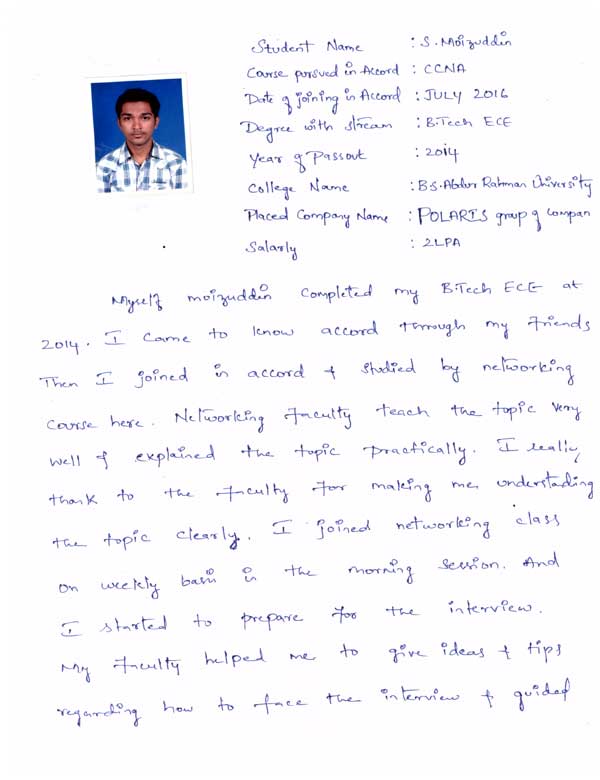 Student Name : S. Moizuddin
Course pursued in Accord : CCNA
Date of joining in Accord : JULY 2016
Degree with stream : B.Tech ECE
Year of Passout : 2014
College Name : B.S. Abdur Rahman University
Placed Company Name : POLARIS group of compan
Salarly : 2LPA
Myself moizuddin completed my B.Tech ECE at
2014. I came to know accord through my friends
Then I joined in accord & studied by networking
course here. Networking Faculty teach the topic very
well & explained the topic practically. I really
thank to the Faculty for making me understading
the topic clearly. I joined networking class
on weekly basis in the morning session. And
I started to prepare for the interview.
My Faculty helped me to give ideas & tips
regarding how to face the interview & guided